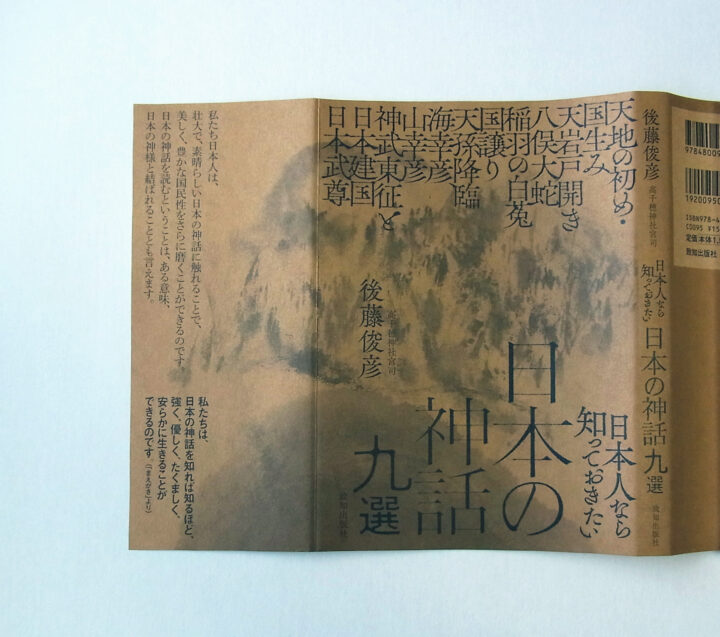 97848009
19200950
ISBN978-4
C0095 ¥15
定価=本体1,5
致知出版社
後藤俊彦
高千穂神社宮司
日本人なら
知っておきたい
日本の神話
九選
致知出版社
天地の初め・
国生み
天岩戸開き
八俣大蛇
稲羽の白兎
国譲り
天孫降臨
海幸彦
山幸彦
神武東征と
日本建国
日本武尊
日本人なら
知っておきたい
日本の
神話
九選
高千穂神社宮司
後藤俊彦
致知出版社
私たち日本人は、
壮大で、素晴らしい日本の神話に触れることで、
美しく、豊かな国民性をさらに磨くことができるのです。
日本の神話を読むということは、ある意味、
日本の神様と結ばれることとも言えます。
私たちは、
日本の神話を知れば知るほど、
強く、優しく、たくましく、
安らかに生きることが
できるのです(「まえがき」より)